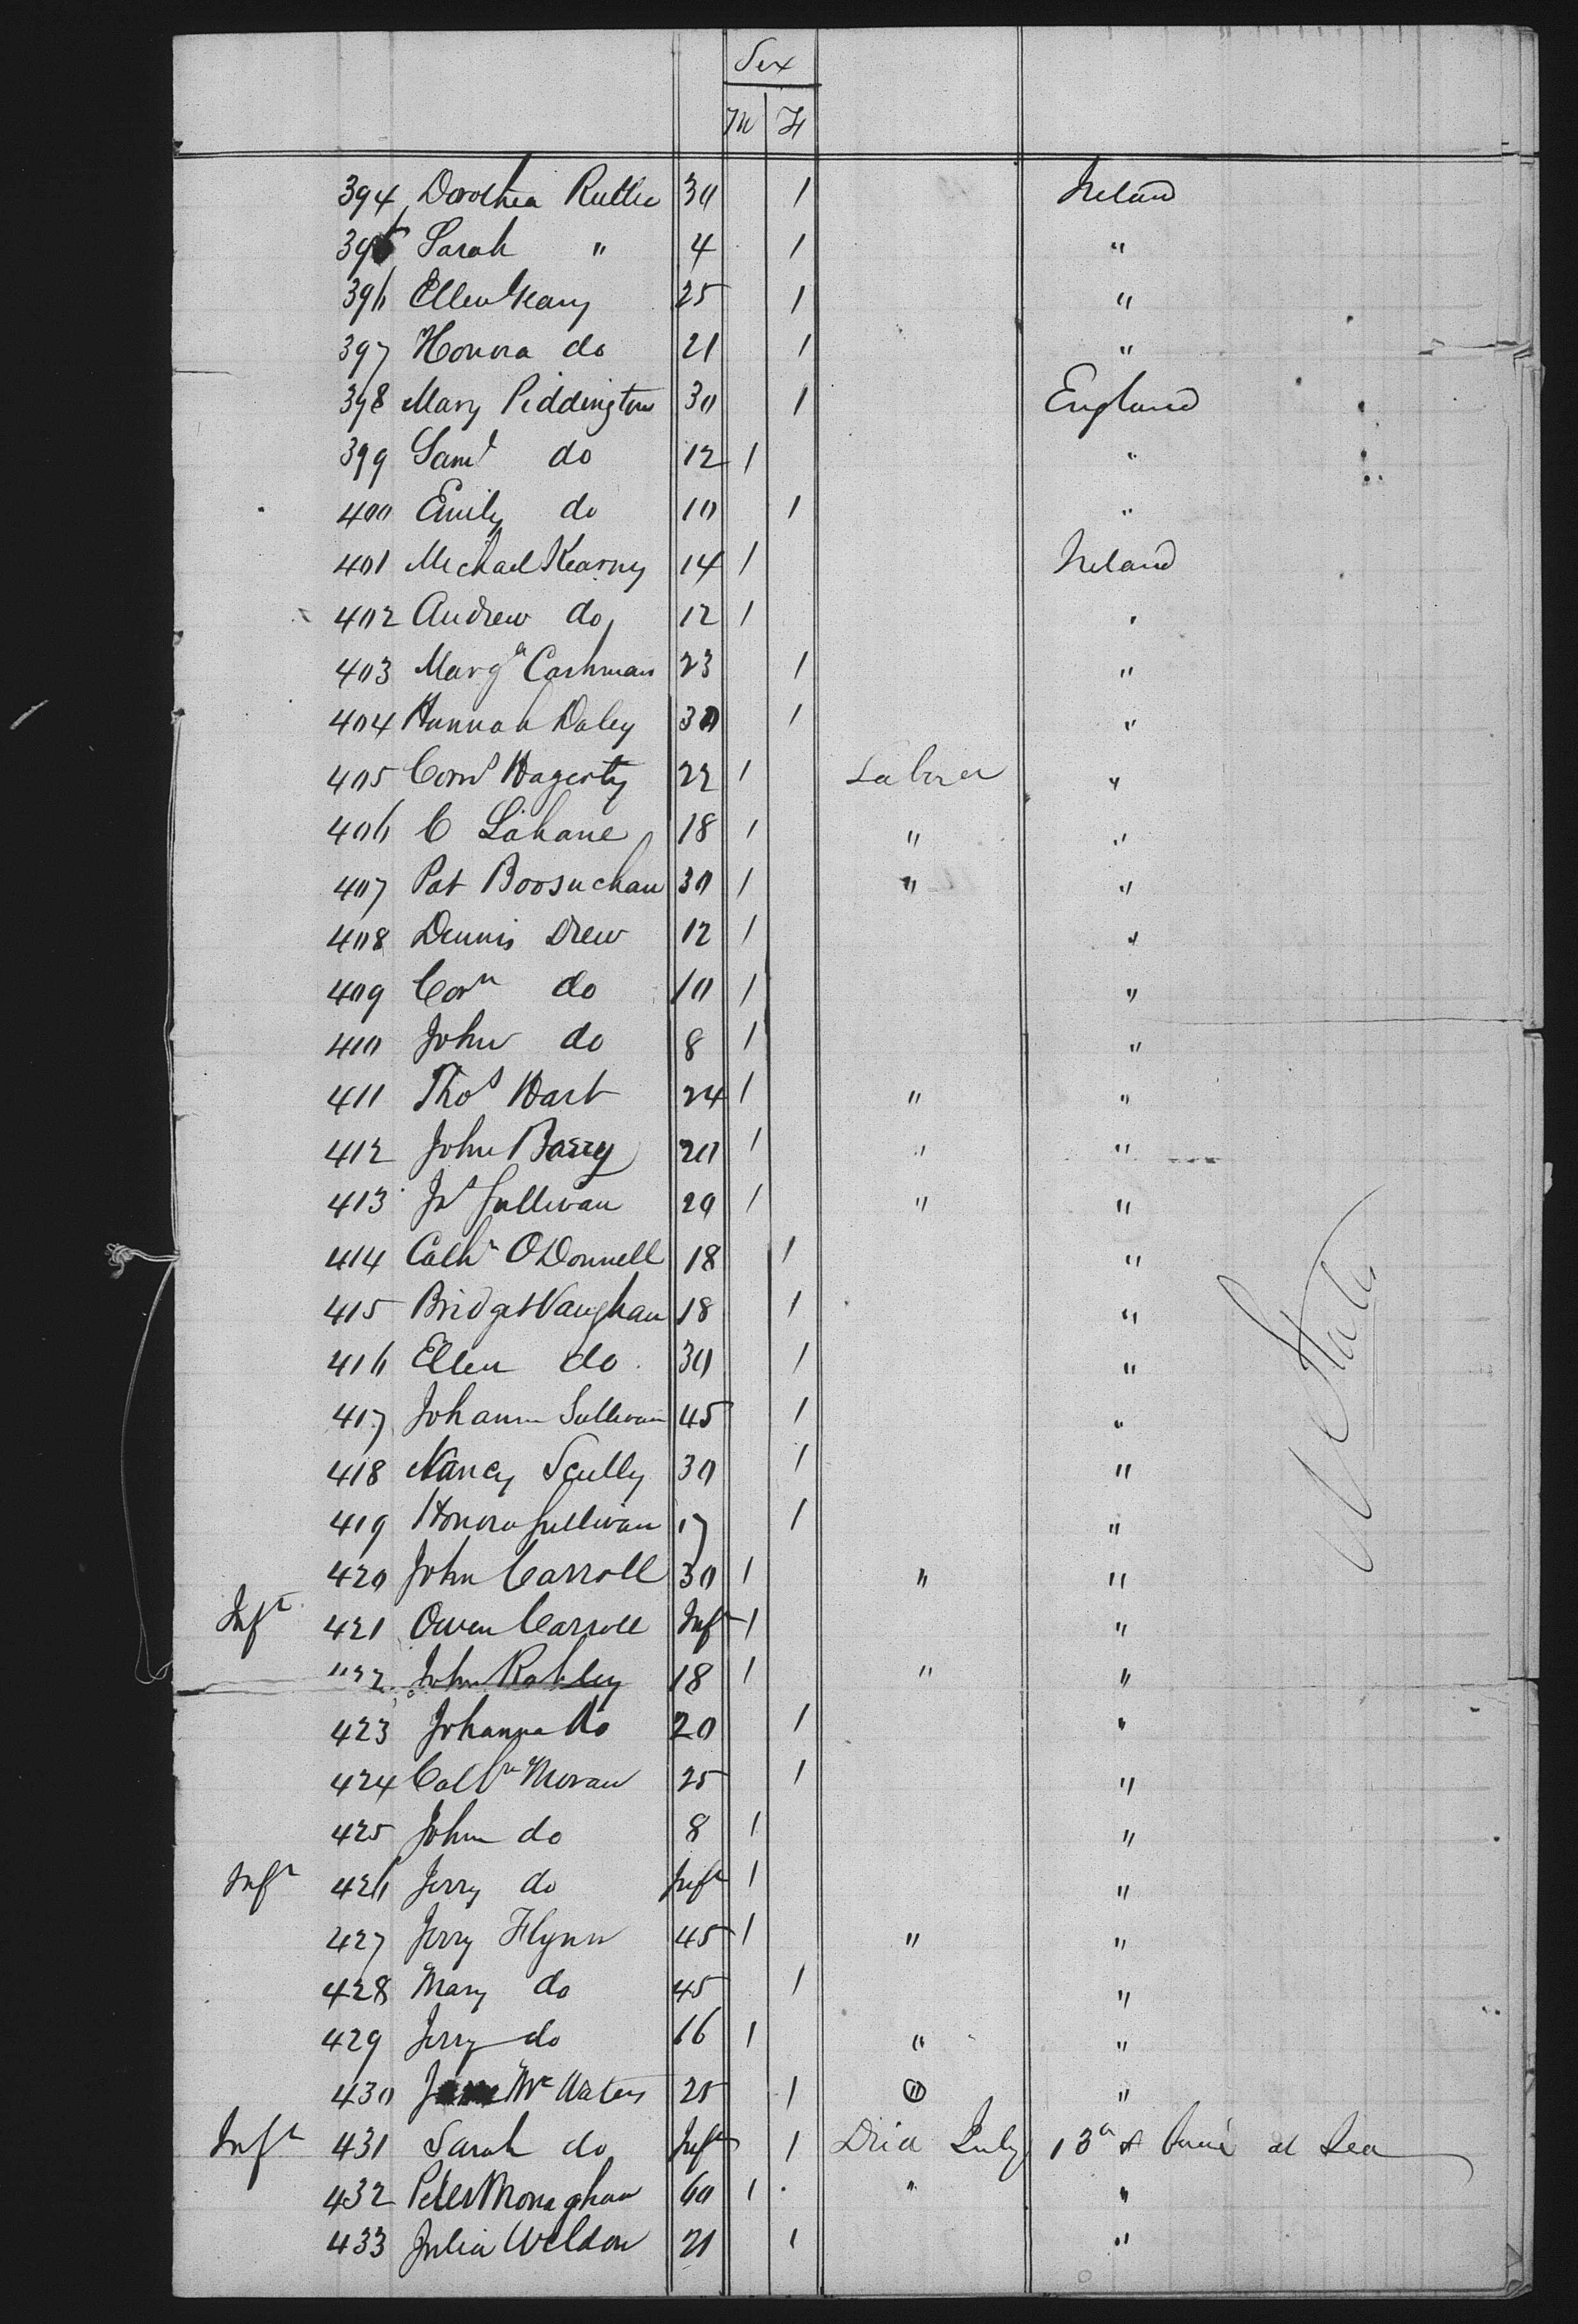 Sex
M F
394 Dorothea Ruttle 30 1 Ireland
395 Sarah " 4 1 "
396 Ellen Geary 25 1 "
397 Honora do 21 1 "
398 Mary Piddington 30 1 England
399 Saml do 12 1 "
400 Emily do 10 1 "
401 Michael Kearny 14 1 Ireland
402 Andrew do 12 1 "
403 Margt Cashman 23 1 "
404 Hannah Daley 30 1 "
405 Corns Hagerty 22 1 Laborer "
406 C Lahane 18 1 " "
407 Pat 30 1 " "
408 Dennis Drew 12 1 "
409 Corn do 10 1 "
410 John do 8 1 "
411 Thos Hart 24 1 " "
412 John Barry 20 1 " "
413 Js Sullivan 20 1 " "
414 Cathn O'Donnell 18 1 "
415 Bridget Vaughan 18 1 "
416 Ellen do 30 1 "
417 Johanna Sullivan 45 1 "
418 Nancy Scully 30 1 "
419 Honora Sullivan 17 1 "
420 John Carroll 30 1 " "
Inft 421 Owen Carroll Inft 1 "
422 John 18 1 " "
423 Johanna do 20 1 "
424 Cathn Moran 25 1 "
425 John do 8 1 "
Inft 426 Jerry do Inft 1 "
427 Jerry Flynn 45 1 " "
428 Mary do 45 1 "
429 Jerry do 16 1 " "
430 Mc Waters 25 1 " "
Inft 431 Sarah do Inft 1 Died July 13th & at Sea
432 Peter Monaghan 60 1 " "
433 Julia Weldon 21 1 "